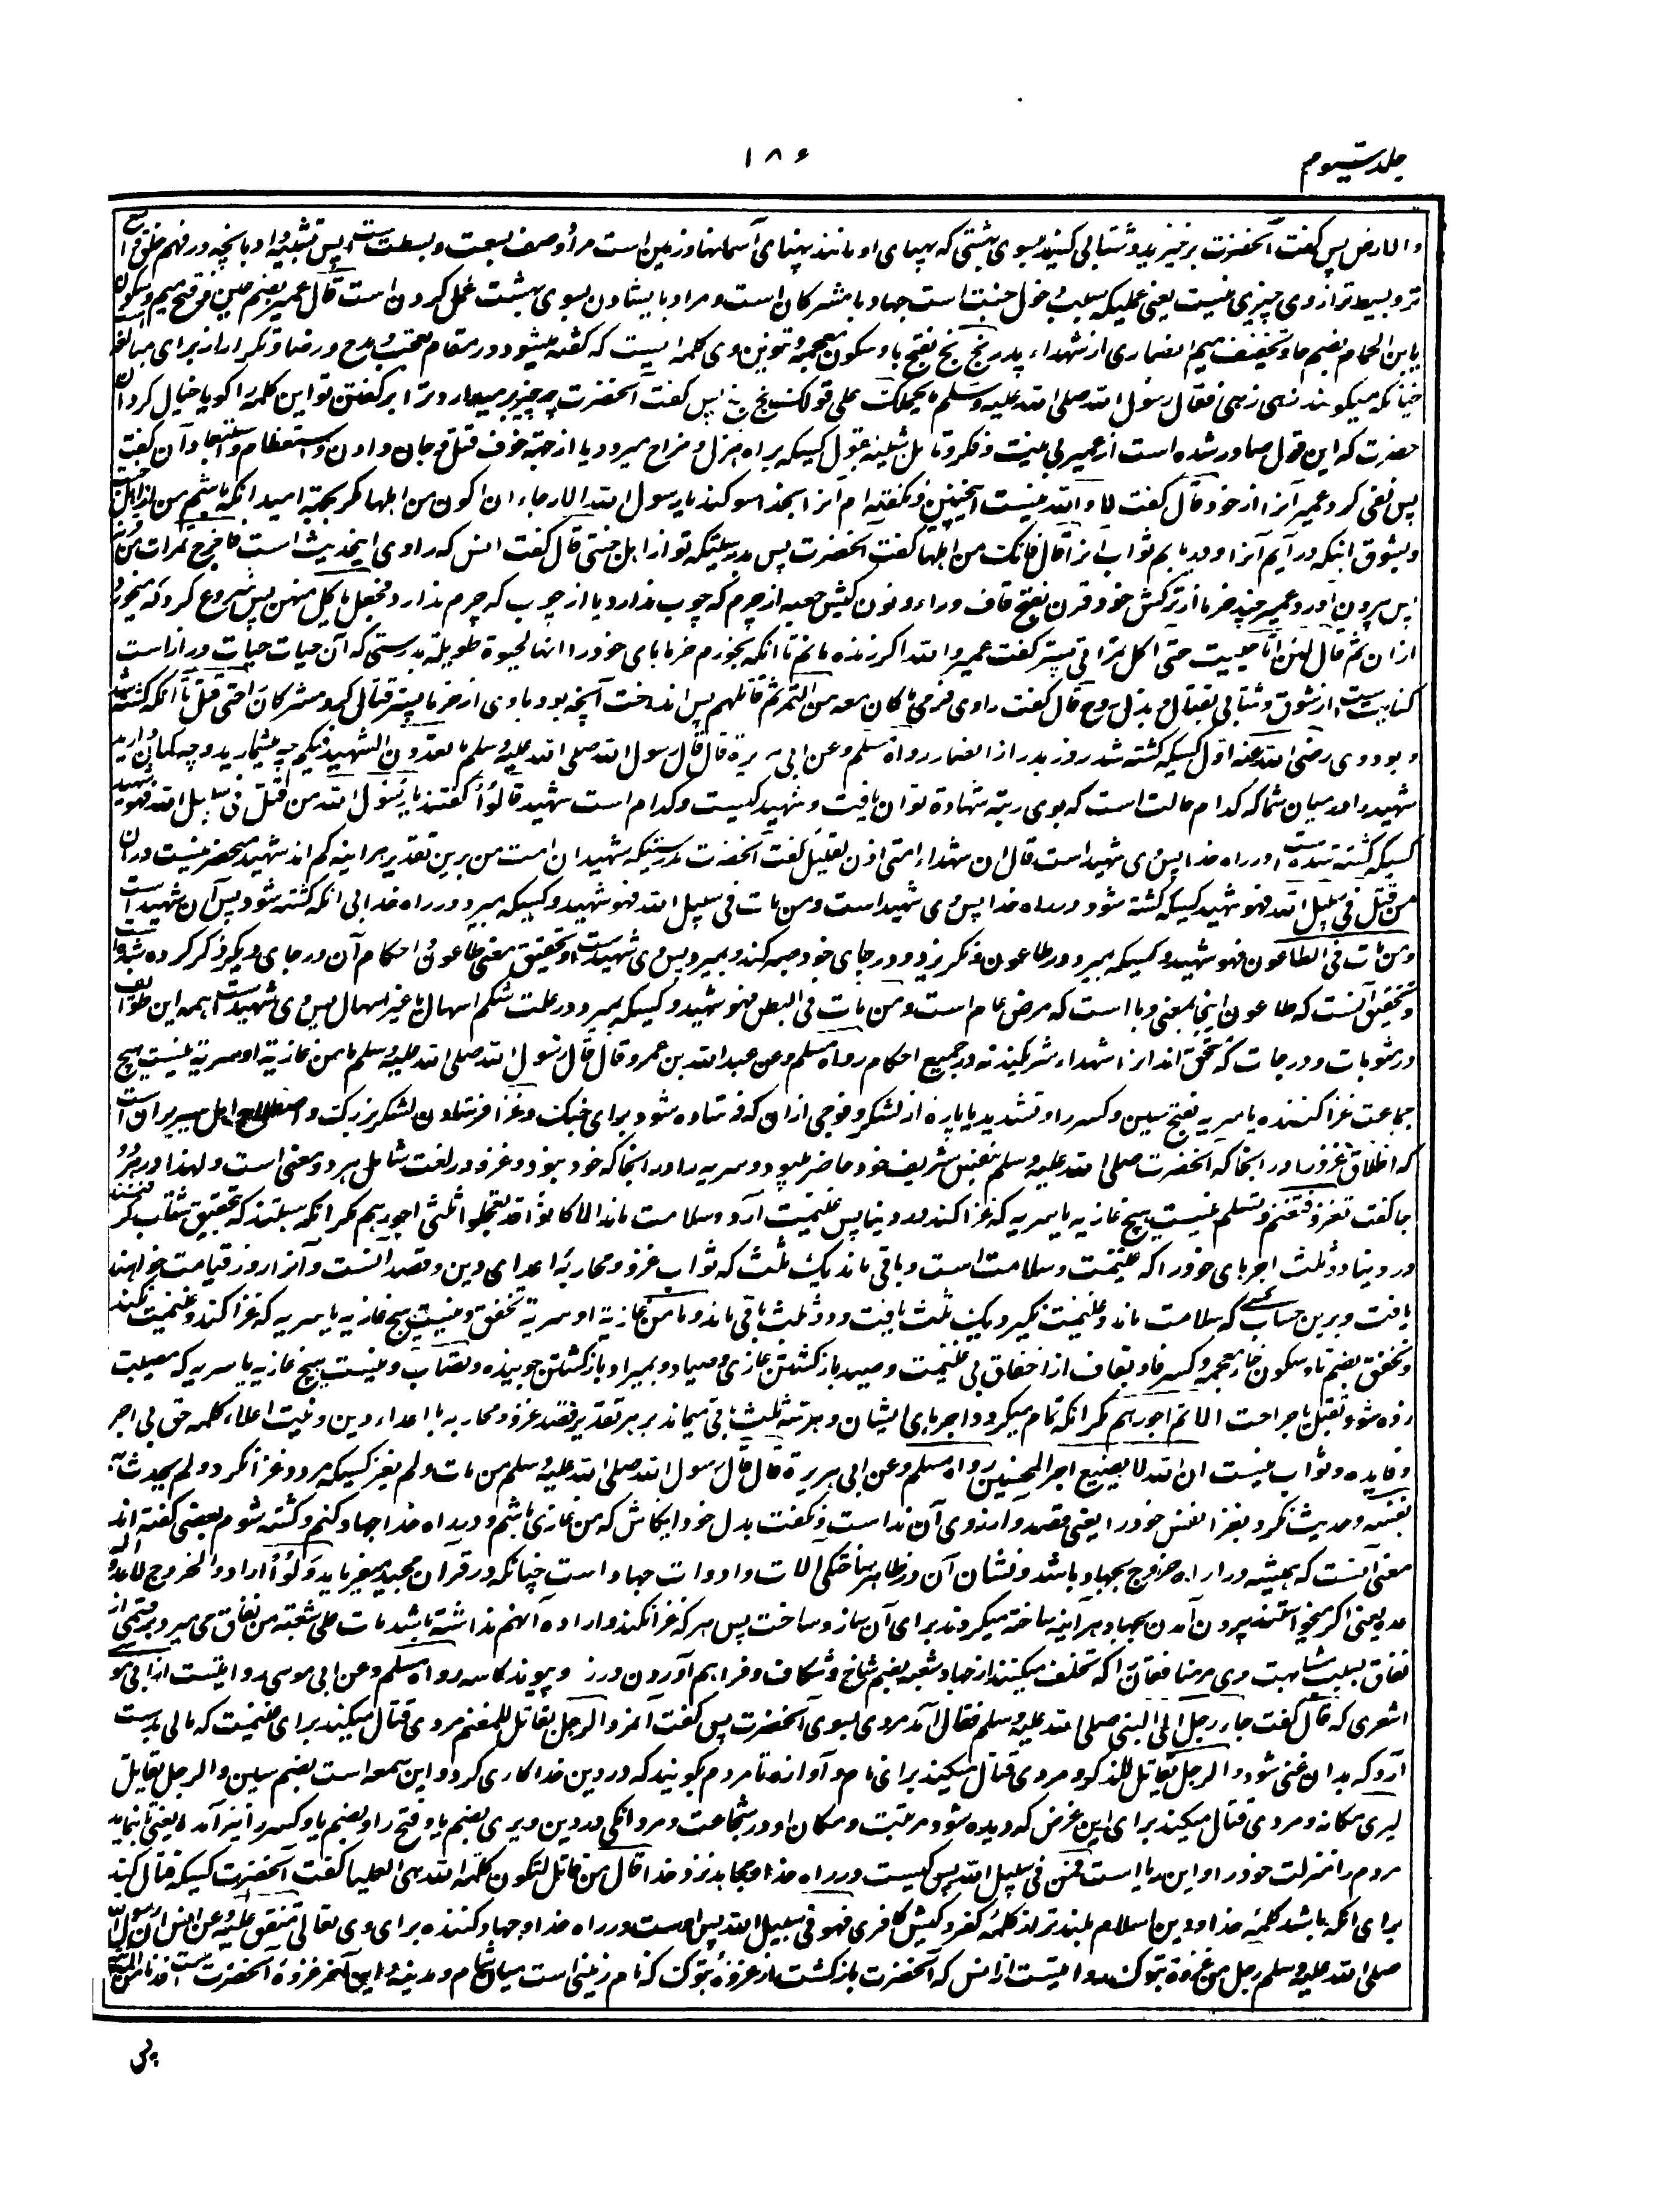 جلد سیوم
۱۸۶
والارض پس گفت آنحضرت برخیزید و شتابی کنید بسوی بهشتی که پهنای او مانند پهنای آسمانها و زمین است مراد وصف بسعت و بسطت ست پس تشبیه داد بانچه در فهم خلق
تر و بسیط تر از وی چیزی نیست یعنی عملیکه سبب دخول جنت است جهاد با مشرکان است و مراد بایستادن بسوی بهشت عمل کردن است قال عمیر بضم عین و فتح میم و سکون
یا بن الحمام بضم حا و تخفیف میم انصاری از شهداء بدر بخ بخ بفتح با و سکون معجمه و تنوین وی کلمه ایست که گفته میشود در مقام تعجب و مدح و رضا و تکرار از برای مبالغه
چنانکه میگویند زهی زهی فقال رسول الله صلی الله علیه وسلم ما یحملک علی قولک بخ بخ پس گفت آنحضرت چه چیز بر میدارد ترا بر گفتن تو این کلمه را گویا خیال کرد آن
حضرت که این قول صادر شده است از عمیر بی نیت و فکر و تامل شبیه بقول کسیکه براه هزل و مزاح میرود یا از جهة خوف قتل و جان دادن و استعظام و استبعاد آن گفت
پس نفی کرد عمیر آنرا از خود قال گفت لا والله نیست اینچنین و نگفته ام آنرا بخدا سوگند یا رسول الله الا رجاء ان اکون من اهلها مگر بجهة امید آنکه باشم من از اهل
و بشوق اینکه در آیم آنرا و دریابم ثواب آنرا قال فانک من اهلها گفت آنحضرت پس بدرستیکه تو از اهل جنتی قال گفت انس که راوی اینحدیث است فاخرج تمرات من قرنه
پس بیرون آورد عمیر چند خرما از ترکش خود قرن بفتح قاف و راء و نون کیش جعبه از چرم که چوب ندارد یا از چوب که چرم ندارد فجعل یاکل منهن پس شروع کرد که میخورد
از ان ثم قال لئن انا حییت حتی آکل تمراتی پستر گفت عمیر والله اگر زنده مانم تا آنکه بخورم خرماهای خود را انها لحیوة طویلة بدرستی که آن حیات حیات دراز است
کنایت ست از شوق و شتابی بقتال و بذل روح قال گفت راوی فرمی بما کان معه من التمر ثم قاتلهم پس انداخت آنچه بود با وی از خرما پستر قتال کرد مشرکان حتی قتل تا آنکه کشته شد
و بود وی رضی الله عنه اول کسیکه کشته شد روز بدر از انصار رواه مسلم و عن ابی هریرة قال قال رسول الله صلی الله علیه وسلم ما تعدون الشهید فیکم چه میشمارید و چه گمان دارید
شهید را در میان شما که کدام حالت است که بوی رتبه شهادة توان یافت و شهید کیست و کدام است شهید قالوا گفتند یا رسول الله من قتل فی سبیل الله فهو شهید
کسیکه کشته شده ست در راه خدا پس وی شهید است قال ان شهداء امتی اذن لقلیل گفت آنحضرت بدرستیکه شهیدان امت من برین تقدیر هر آینه کم اند شهید منحصر نیست در آن
من قتل فی سبیل الله فهو شهید کسیکه کشته شود در راه خدا پس وی شهید است و من مات فی سبیل الله فهو شهید و کسیکه میرد در راه خدا بی آنکه کشته شود پس آن شهید است
و من مات فی الطاعون فهو شهید و کسیکه بمیرد در طاعون و نگریزد و در جای خود صبر کند و بمیرد پس وی شهید ست و تحقیق معنی طاعون و احکام آن در جای دیگر ذکر کرده شد
و تحقیق آنست که طاعون اینجا بمعنی وبا است که مرض عام است و من مات فی البطن فهو شهید و کسیکه بمیرد در علت شکم اسهال یا غیر اسهال پس وی شهید ست همه این طوائف
در مثوبات و درجات که مستحق اند آنرا شهداء شریکند نه در جمیع احکام رواه مسلم و عن عبد الله بن عمرو قال قال رسول الله صلی الله علیه وسلم ما من غازیة او سریة نیست هیچ
جماعت غزا کننده یا سریه بفتح سین و کسر را و تشدید یا پاره از لشکر و فوجی از ان که فرستاده شود برای جنگ و غزا فرستادن لشکر بزرگ و اصطلاح اهل سیر بران است
که اطلاق غزو را در آنجا که آنحضرت صلی الله علیه وسلم بنفس شریف خود حاضر میبود و سریه را در آنجا که خود نبود و غزو در لغت شامل هر دو معنی است و لهذا در هر دو
جا گفت تغزو فتغنم و تسلم نیست هیچ غازیه یا سریه که غزا کند در دنیا پس غنیمت آرد و سلامت ماند الا کانوا قد تعجلوا ثلثی اجورهم مگر آنکه هستند که بتحقیق شتاب گرفتند
در دنیا دو ثلث اجرهای خود را که غنیمت و سلامت است و باقی ماند یک ثلث که ثواب غزو و محاربه اعدای دین و قصد آنست و آنرا روز قیامت خواهند
یافت و برین حساب کسی که سلامت ماند و غنیمت نگیرد یک ثلث یافت و دو ثلث باقی ماند و ما من غازیة او سریة تخفق و نیست هیچ غازیه یا سریه که غزا کند و غنیمت نکند
و تخفق بضم تاء و سکون خاء معجمه و کسر فا و بقاف از اخفاق بی غنیمت و صید باز گشتن غازی و صیاد و بمراد باز گشتن جوینده و تصاب و نیست هیچ غازیه یا سریه که مصیبت
زده شود بقتل یا جراحت الا تم اجورهم مگر آنکه تمام میگردد اجرهای ایشان و هر سه ثلث باقی میماند بر هر تقدیر قصد غزو و محاربه با اعداء دین و نیت اعلاء کلمه حق بی اجر
و فایده و ثواب نیست ان الله لا یضیع اجر المحسنین رواه مسلم و عن ابی هریرة قال قال رسول الله صلی الله علیه وسلم من مات و لم یغز کسیکه مرد و غزا نکرد و لم یحدث به
نفسه و حدیث نکرد بغزا نفس خود را یعنی قصد و آرزوی آن نداشت و نگفت بدل خود ایکاش که من غازی باشم و در راه خدا جهاد کنم و کشته شوم بعضی گفته اند
معنی آنست که همیشه در اراده خروج بجهاد باشد و نشان آن در ظاهر ساختگی آلات و ادوات جهاد است چنانکه در قرآن مجید میفرماید و لو ارادوا الخروج لاعدوا له
عده یعنی اگر میخواستند بیرون آمدن بجهاد هر آینه ساخته میکردند برای آن ساز و ساخت پس هر که غزا نکند و اراده آن هم نداشته باشد مات علی شعبة من نفاق می میرد بر قسمی از
نفاق بسبب مشابهت وی مر منافقان را که تخلف میکنند از جهاد شعبه بضم شاخ و شکاف و فراهم آوردن درز و پیوند کاسه رواه مسلم و عن ابی موسی روایتست از ابی موسی
اشعری که قال گفت جاء رجل الی النبی صلی الله علیه وسلم فقال آمد مردی بسوی آنحضرت پس گفت آنمرد الرجل یقاتل للمغنم مردی قتال میکند برای غنیمت که مالی بدست
آرد که بدان غنی شود و الرجل یقاتل للذکر و مردی قتال میکند برای نام و آوازه تا مردم گویند که در دین خدا کاری کرد و این سمعه است بضم سین و الرجل یقاتل
لیری مکانه و مردی قتال میکند برای این غرض که دیده شود مرتبت و مکان او در شجاعت و مردانگی در دین و یری بضم یا و فتح را و بضم یا و کسر را نیز آمده یعنی تا بنماید
مردم را منزلت خود را و این ریا است فمن فی سبیل الله پس کیست در راه خدا و مجاهد نزد خدا قال من قاتل لتکون کلمة الله هی العلیا گفت آنحضرت کسیکه قتال کند
برای آنکه باشد کلمه خدا و دین اسلام بلند تر از کلمه کفر و کیش کافری فهو فی سبیل الله پس اوست در راه خدا و جهاد کننده برای وی تعالی متفق علیه و عن انس ان رسول الله
صلی الله علیه وسلم رجل من غزوة تبوک روایتست از انس که آنحضرت باز گشت از غزوه تبوک که نام زمینی است میان شام و مدینه و این آخر غزوه آنحضرت ست فدنا من المدینة
پس